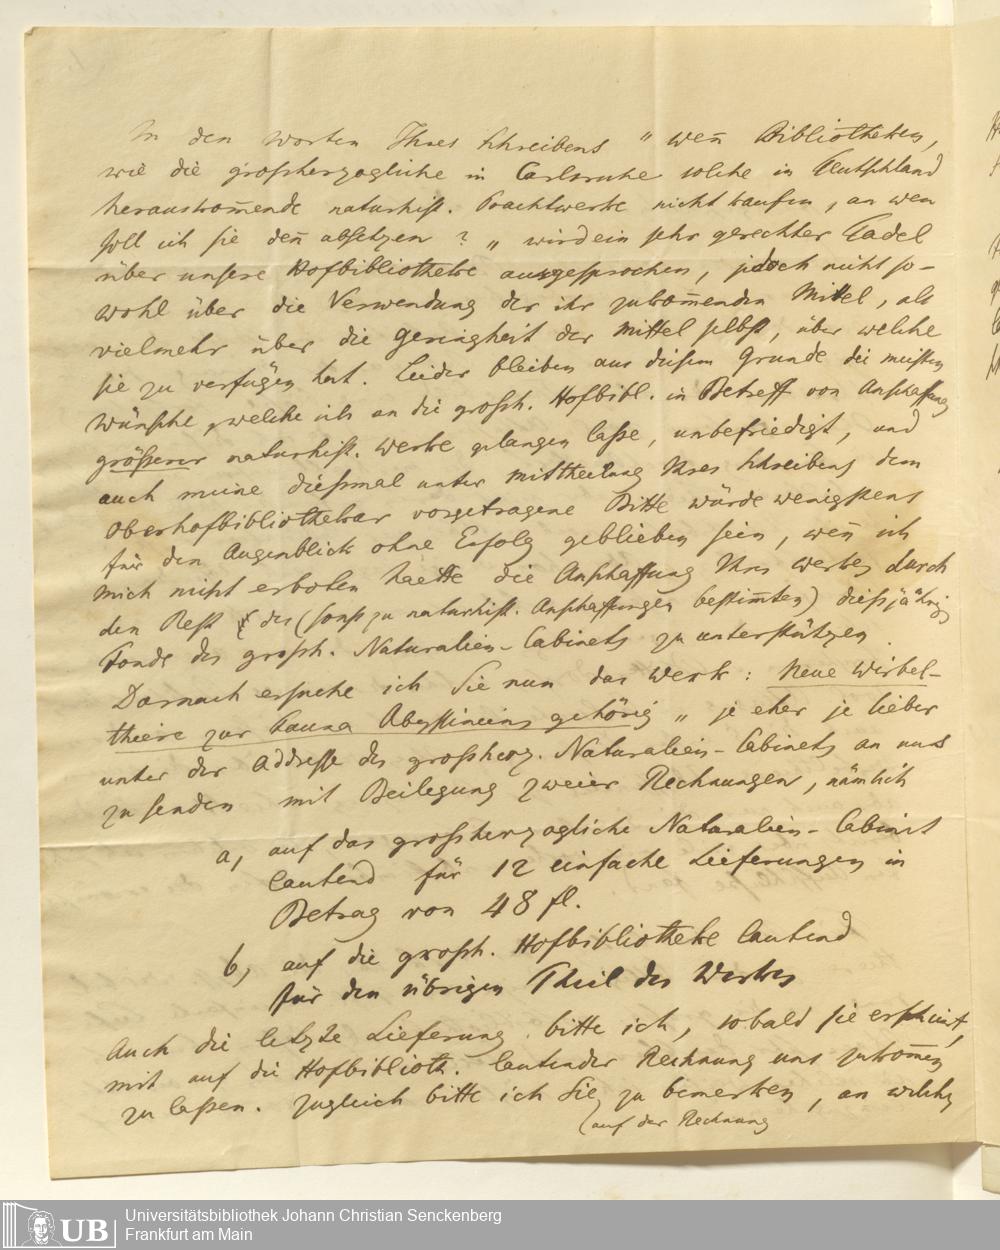 In den Worten Ihres Schreibens „ wen̄ Bibliotheken,
wie die grosherzogliche in Carlsruhe solche in Deutschland
herauskom̄ende naturhist. Prachtwerke nicht kaufen, an wen
soll ich sie den̄ absetzen? „ wird ein sehr gerechter Tadel
über unsere Hofbibliotheke ausgesprochen, jedoch nicht so-
wohl über die Verwendung der ihr zukom̄enden Mittel, als
vielmehr über die Geringheit der Mittel selbst, über welche
sie zu verfügen hat. Leider bleiben aus diesem Grunde die meisten
Wünsche, welche ich an die grosh. Hofbibl. in Betreff von Anschaffung
größerer naturhist. Werke gelangen laße, unbefriedigt, und
auch meine dießmal unter Mittheilung Ihres Schreibens dem
Oberhofbibliothekar vorgetragene Bitte würde wenigstens
für den Augenblick ohne Erfolg geblieben sein, wen̄ ich
mich nicht erboten haette die Anschaffung Ihres Werkes durch
den Rest des (sonst zu naturhist. Anschaffungen bestim̄ten) dießjährig
Fonds des grosh. Naturalien-Cabinets zu unterstützen.
Darnach ersuche ich Sie nun das Werk: Neue Wirbel-
thiere zur Fauna Abyssiniens gehörig „ je eher je lieber
unter der Addresse des grosherz. Naturalien-Cabinets an uns
zu senden mit Beilegung zweier Rechnungen, nämlich
a, auf das grosherzogliche Naturalien-Cabinet
lautend für 12 einfache Lieferungen in
Betrag von 48 fl.
b, auf die grosh. Hofbibliotheke lautend
für den übrigen Theil des Werkes
Auch die letzte Lieferung bitte ich, sobald sie erscheint,
mit auf die Hofbiblioth. lautender Rechnung uns zukom̄en
zu laßen. Zugleich bitte ich Sie zu bemerken, an welchen
(auf der Rechnung
UB
Universitätsbibliothek Johann Christian Senckenberg
Frankfurt am Main